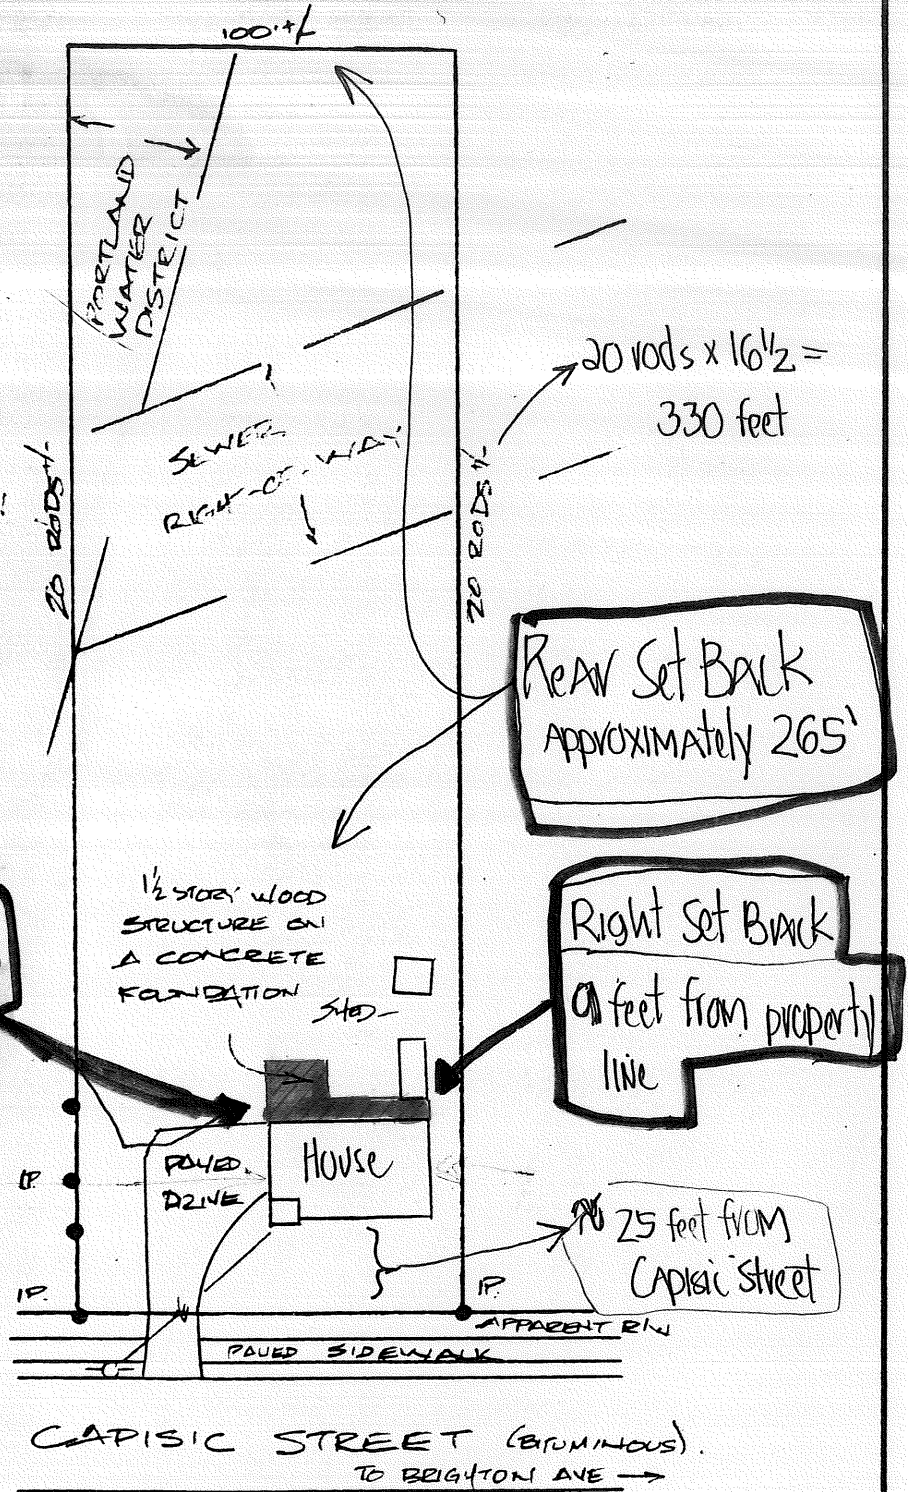 100'+/-
PORTLAND
WATER
DISTRICT
20 rods x 16 1/2 =
330 feet
SEWER
RIGHT-OF-WAY
20 RODS +/-
20 RODS +/-
Rear Set Back
Approximately 265'
1 1/2 STORY WOOD
STRUCTURE ON
A CONCRETE
FOUNDATION
SHED
Right Set Back
9 feet from property
line
House
PAVED
DRIVE
IP.
25 feet from
Capisic Street
IP.
IP.
APPARENT R/W
PAVED SIDEWALK
CAPISIC STREET (BITUMINOUS).
TO BRIGHTON AVE →